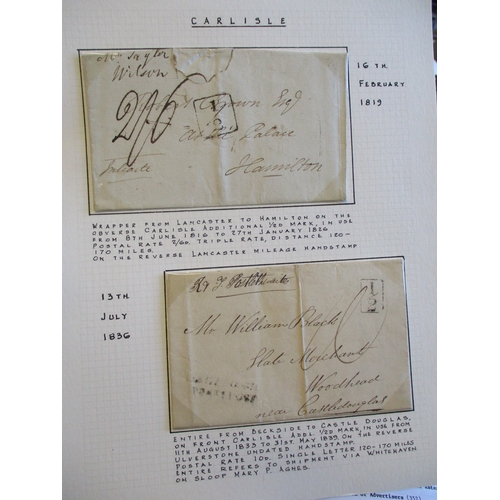 CARLISLE
16TH
FEBRUARY
1819
Mrs Taylor
Wilson
2/6
Brown Esqr
Palace
Hamilton
WRAPPER FROM LANCASTER TO HAMILTON ON THE
OBVERSE CARLISLE ADDITIONAL 1/2D MARK, IN USE
FROM 8TH JUNE 1816 TO 27TH JANUARY 1826
POSTAL RATE 2/6D. TRIPLE RATE, DISTANCE 120-
170 MILES.
ON THE REVERSE LANCASTER MILEAGE HANDSTAMP
13TH
JULY
1836
Mr William Black
Slate Merchant
Woodhead
near Castledouglas
1
2
ENTIRE FROM BECKSIDE TO CASTLE DOUGLAS,
ON FRONT CARLISLE ADDL 1/2D MARK, IN USE FROM
11TH AUGUST 1833 TO 31ST MAY 1839. ON THE REVERSE
ULVERSTONE UNDATED HANDSTAMP.
POSTAL RATE 10D. SINGLE LETTER 120-170 MILES
ENTIRE REFERS TO SHIPMENT VIA WHITEHAVEN
ON SLOOP MARY P. AGNES.